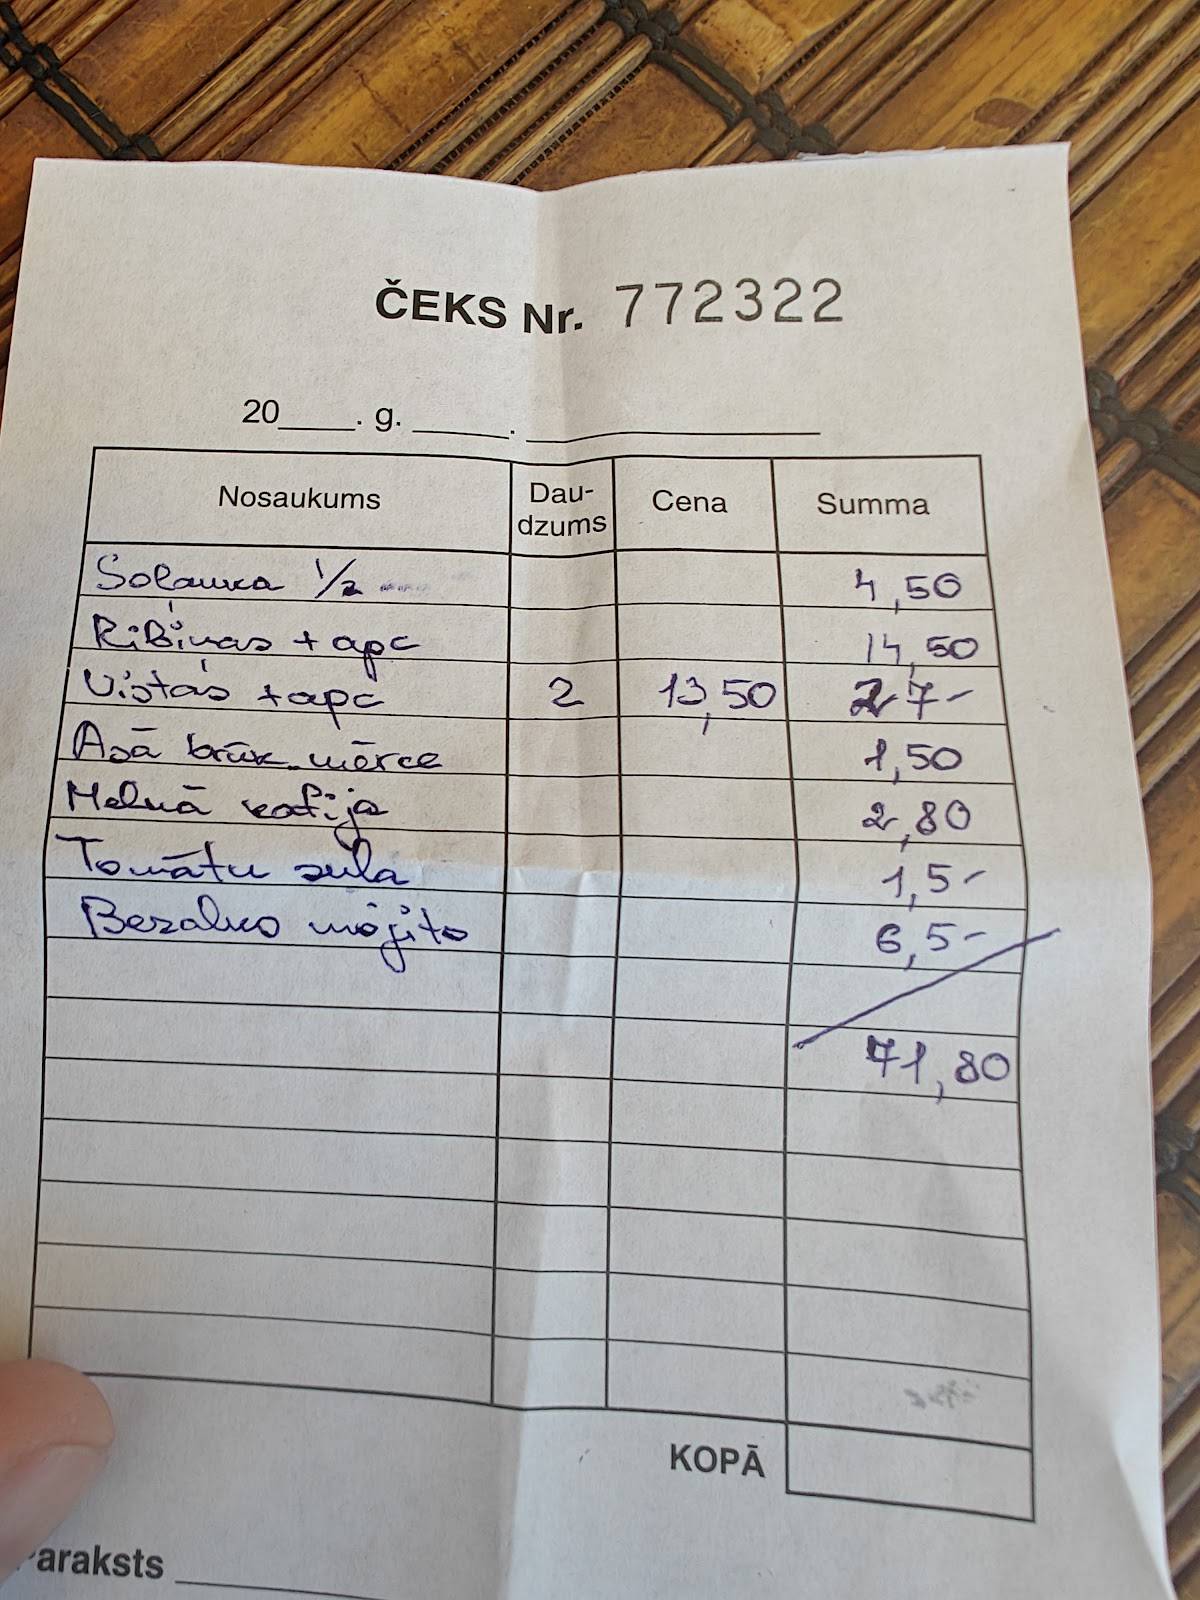 ČEKS Nr. 772322
20____. g. _____. _______________
Nosaukums Dau-dzums Cena Summa
Solanka 1/2 4,50
Ribiņas + apc 14,50
Vistas + apc 2 13,50 27-
Asā brūk. mērce 1,50
Melnā kafija 2,80
Tomātu sula 1,5-
Bezalko mojito 6,5-
71,80
KOPĀ
Paraksts